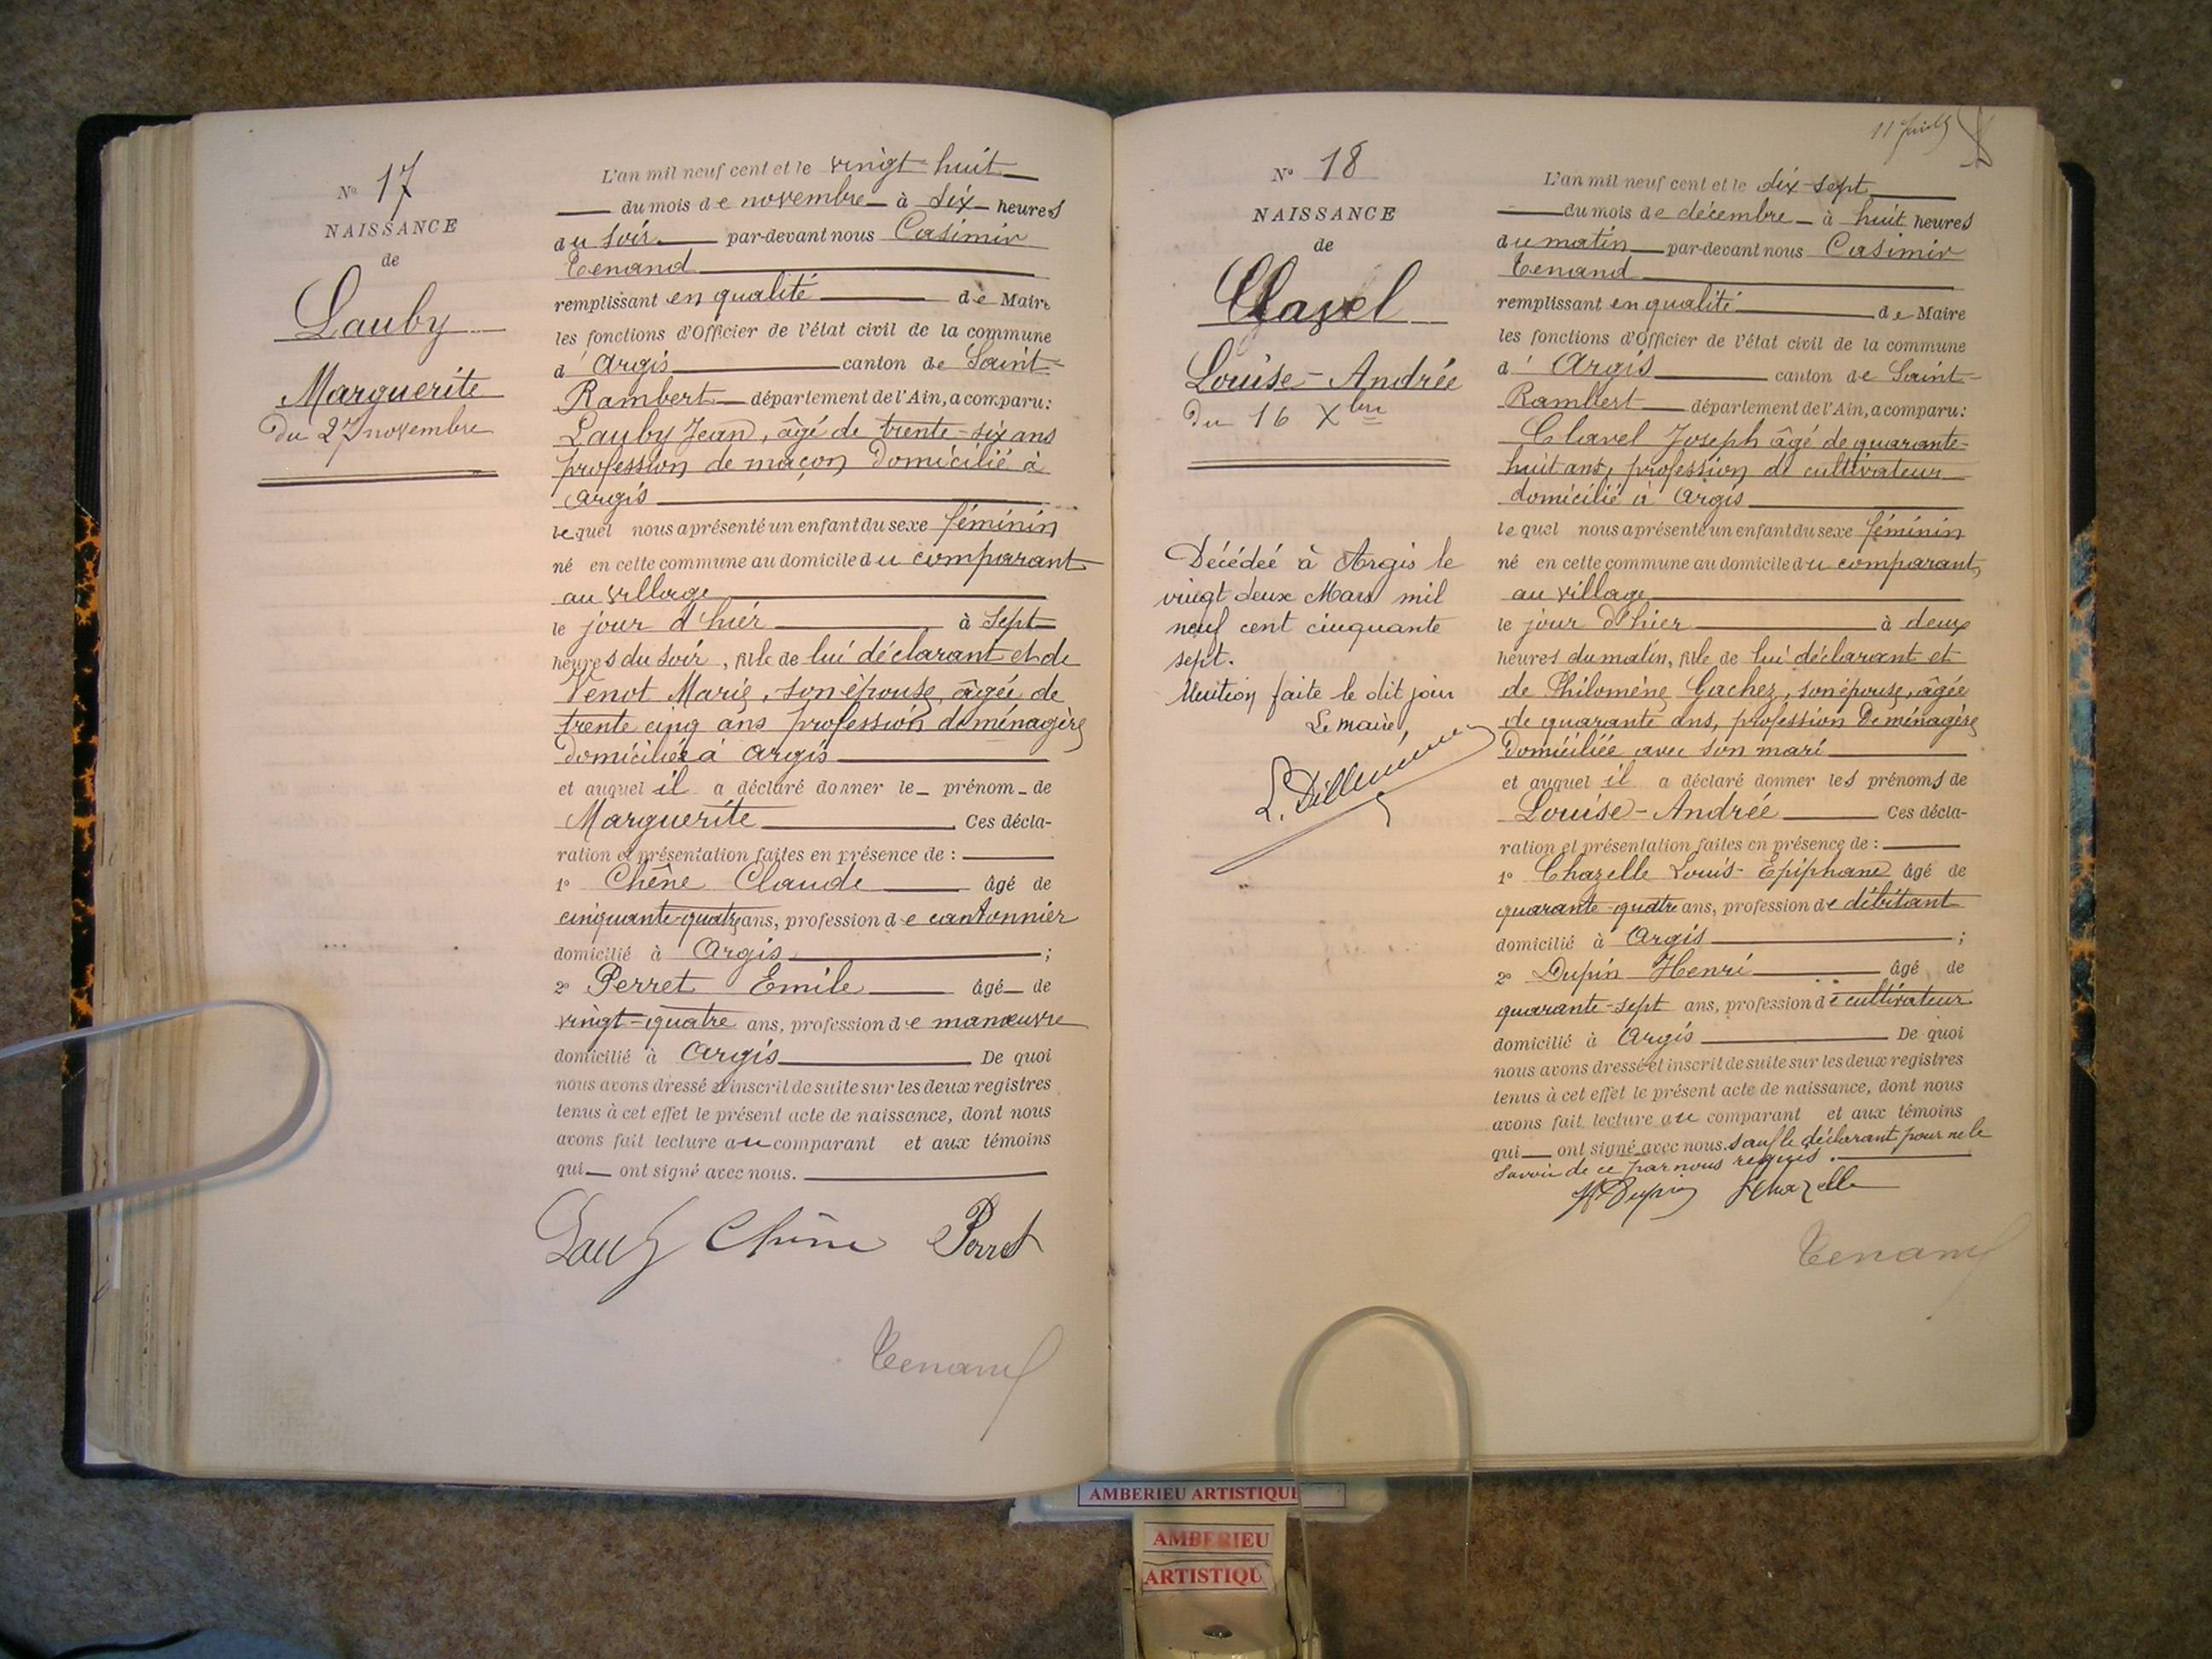 No 17
NAISSANCE
de
Lauby
Marguerite
Du 27 novembre
L'an mil neuf cent et le vingt huit
du mois de novembre à dix heures
du soir par-devant nous Casimir
Tenand
remplissant en qualité de Maire
les fonctions d'Officier de l'état civil de la commune
d' Argis canton de Saint-
Rambert département de l'Ain, a comparu:
Lauby Jean, âgé de trente-six ans
profession de maçon domicilié à
Argis
lequel nous a présenté un enfant du sexe féminin
né en cette commune au domicile du comparant
au village
le jour d'hier à sept
heures du soir, fille de lui déclarant et de
Venot Marie, son épouse, âgée de
trente cinq ans profession de ménagère
domiciliée à Argis
et auquel il a déclaré donner le prénom de
Marguerite Ces décla-
ration et présentation faites en présence de :
1° Chêne Claude âgé de
cinquante-quatre ans, profession de cantonnier
domicilié à Argis ;
2° Perret Emile âgé de
vingt-quatre ans, profession de manœuvre
domicilié à Argis De quoi
nous avons dressé et inscrit de suite sur les deux registres
tenus à cet effet le présent acte de naissance, dont nous
avons fait lecture au comparant et aux témoins
qui ont signé avec nous.
Lauby Chêne Perret
Tenand
No 18
NAISSANCE
de
Clavel
Louise-Andrée
Du 16 Xbre
Décédée à Argis le
vingt deux Mars mil
neuf cent cinquante
sept.
Mention faite le dit jour
Le maire,
11
L'an mil neuf cent et le dix-sept
du mois de décembre à huit heures
du matin par-devant nous Casimir
Tenand
remplissant en qualité de Maire
les fonctions d'Officier de l'état civil de la commune
d' Argis canton de Saint-
Rambert département de l'Ain, a comparu:
Clavel Joseph âgé de quarante-
huit ans, profession de cultivateur
domicilié à Argis
lequel nous a présenté un enfant du sexe féminin
né en cette commune au domicile du comparant,
au village
le jour d'hier à deux
heures du matin, fille de lui déclarant et
de Philomène Gachez, son épouse, âgée
de quarante ans, profession de ménagère
domiciliée avec son mari
et auquel il a déclaré donner les prénoms de
Louise-Andrée Ces décla-
ration et présentation faites en présence de :
1° Chazelle Louis-Epiphane âgé de
quarante-quatre ans, profession de débitant
domicilié à Argis ;
2° Dupin Henri âgé de
quarante-sept ans, profession de cultivateur
domicilié à Argis De quoi
nous avons dressé et inscrit de suite sur les deux registres
tenus à cet effet le présent acte de naissance, dont nous
avons fait lecture au comparant et aux témoins
qui ont signé avec nous. sauf le déclarant pour ne le
savoir de ce par nous requis.
H Dupin Chazelle
Tenand
AMBERIEU ARTISTIQUE
AMBERIEU
ARTISTIQU